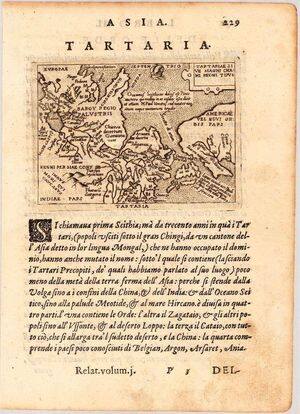 ASIA. 229
TARTARIA.
EUROPAE
SEPTEN TRIO
TARTARIAE SI
VE MAGNI CHA
MI REGNI TYPVS
BARGV REGIO
PALVSTRIS
AMERICAE
VEL NOVI OR
BIS PARS
INDIAE PARS
TARTARIA
SI chiamaua prima Scithia; mà da trecento anni in quà i Tar
tari, (popoli vsciti sotto il gran Chingi, da vn cantone del
l'Asia detto in lor lingua Mongal,) che ne hanno occupato il domi
nio, hanno anche mutato il nome: sotto'l quale si contiene (lasciando
i Tartari Precopiti, de' quali habbiamo parlato al suo luogo) poco
meno della metà della terra ferma dell'Asia: perche si stende dalla
Volga sino a i confini della China, & dell'India: & dall'Oceano Sci
tico, sino alla palude Meotide, & al mare Hircano. è diuisa in quat
tro parti: l'vna contiene le Orde: l'altra il Zagataio, & gli altri po
poli sino all'Vssonte, & al deserto Loppo: la terza il Cataio, con tut-
to ciò, che si allarga tra'l sudetto deserto, e la China: la quarta com
prende i paesi poco conosciuti di Belgian, Argon, Arsaret, Ania.
Relat.volum.j. P 3 DEL-